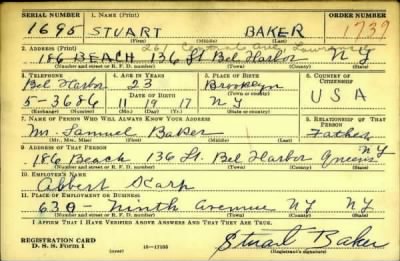 SERIAL NUMBER 1. NAME (Print) ORDER NUMBER
1695 STUART BAKER 1739
(First) (Middle) (Last)
2. ADDRESS (Print) 261 Central Ave Lawrence
186 BEACH 136 St Bel Harbor NY
(Number and street or R. F. D. number) (Town) (County) (State)
3. TELEPHONE 4. AGE IN YEARS 5. PLACE OF BIRTH 6. COUNTRY OF CITIZENSHIP
Bel Harbor 23 Brooklyn
DATE OF BIRTH (Town or county) USA
5-3686 11 19 17 NY
(Exchange) (Number) (Mo.) (Day) (Yr.) (State or country)
7. NAME OF PERSON WHO WILL ALWAYS KNOW YOUR ADDRESS 8. RELATIONSHIP OF THAT PERSON
Mr. Samuel Baker Father
(Mr., Mrs., Miss) (First) (Middle) (Last)
9. ADDRESS OF THAT PERSON
186 Beach 136 St. Bel Harbor Queens NY
(Number and street or R. F. D. number) (Town) (County) (State)
10. EMPLOYER'S NAME
Abbert
11. PLACE OF EMPLOYMENT OR BUSINESS
630 - Ninth Avenue NY NY
(Number and street or R. F. D. number) (Town) (County) (State)
I AFFIRM THAT I HAVE VERIFIED ABOVE ANSWERS AND THAT THEY ARE TRUE.
REGISTRATION CARD
D. S. S. Form 1 (over) 16-17105 Stuart Baker
(Registrant's signature)